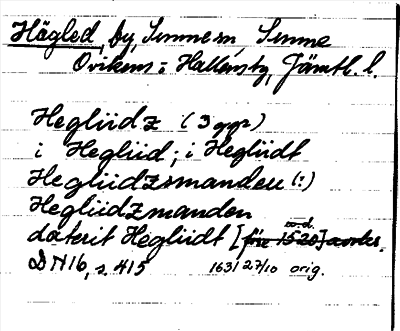 Hägled, by, Sunne sn, Sunne
Ovikens : Hallens tg, Jämtl. l.
Hegliidz (3 ggr)
i Hegliid; i Hegliidt
Hegliidzsmanden (:)
Hegliidzmanden
o.d.
daterit Hegliidt [före 1520] avskr.
DN16, s. 415 1631 27/10 orig.